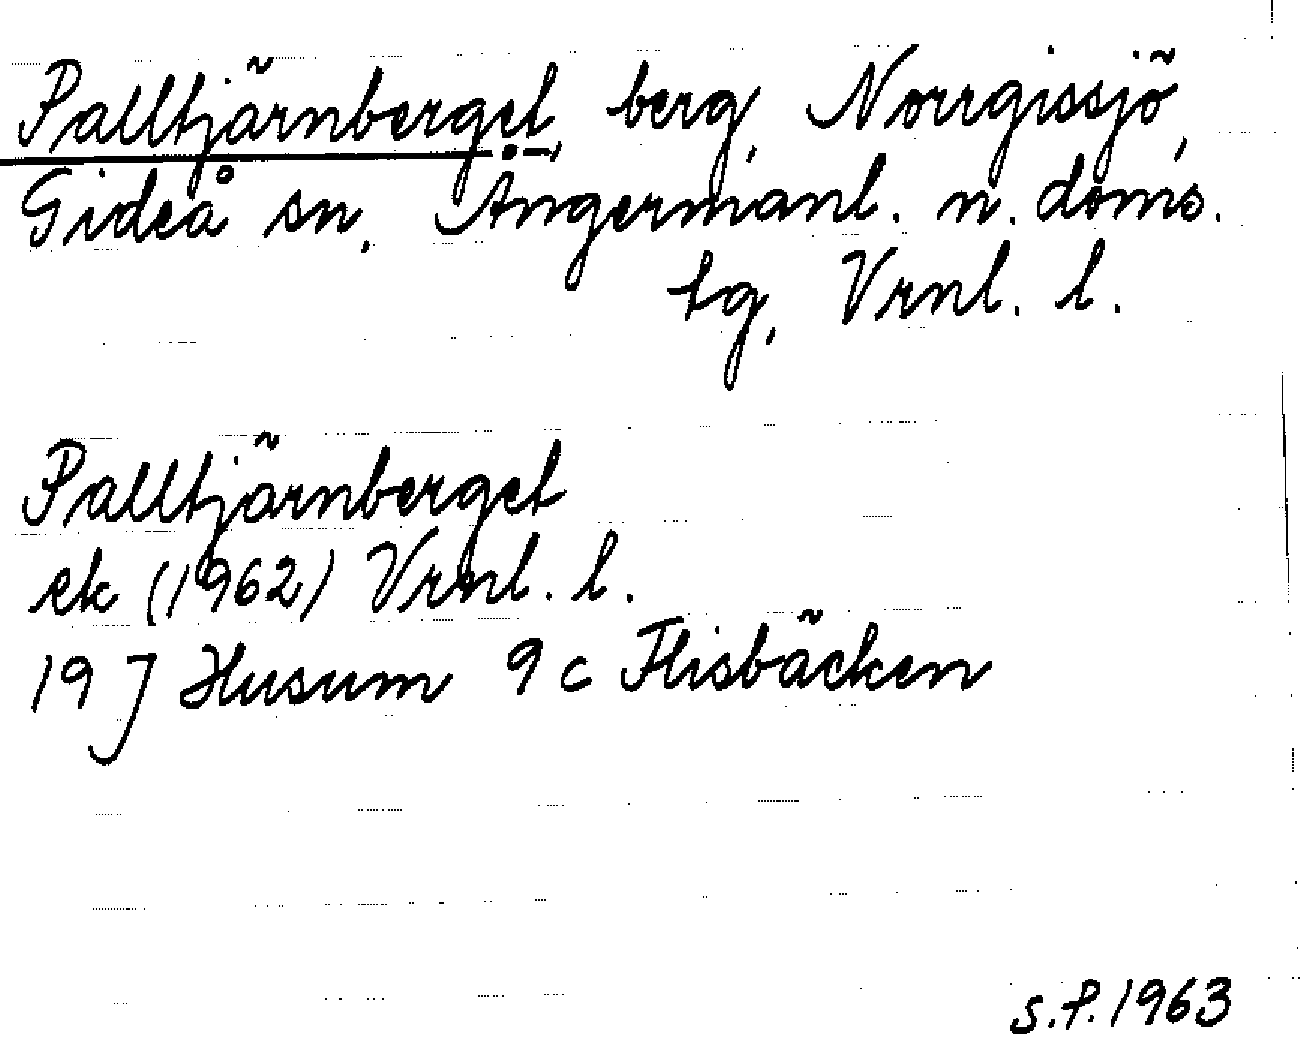 Palltjärnberget, berg, Norrgissjö,
Gideå sn, Ångermanl. n. doms.
tg, Vrnl. l.
Palltjärnberget
ek (1962) Vrnl. l.
19 J Husum 9 c Flisbäcken
S.P. 1963